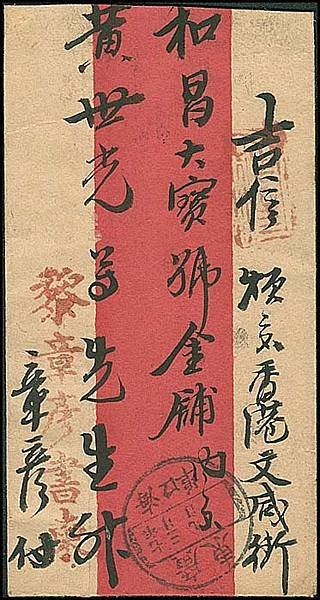 吉信 煩交香港文咸街
和昌大寶號金舖內交
黃世光 先生升
章彥付
黎章彥書柬